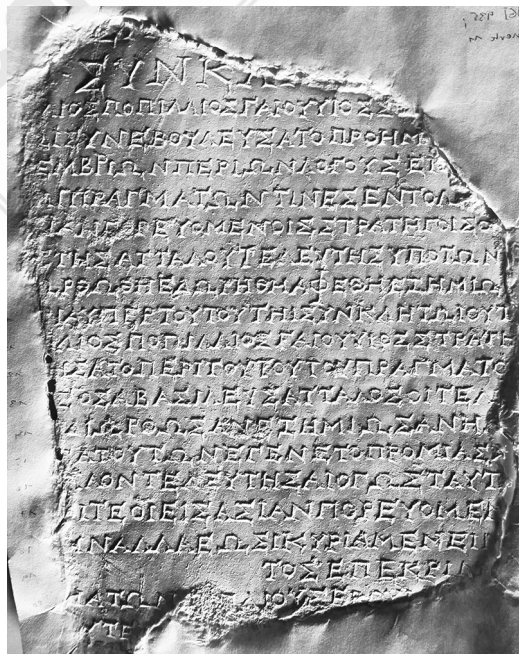 ΣΥΝΚΛ
ΑΙΟΣΠΟΠΙΛΛΙΟΣΓΑΙΟΥΥΙΟΣΣ
ΩΙΣΥΝΕΒΟΥΛΕΥΣΑΤΟΠΡΟΗΜ
ΕΜΒΡΙΩΝΠΕΡΙΩΝΛΟΓΟΥΣΕΠ
ΩΙΠΡΑΓΜΑΤΩΝΤΙΝΕΣΕΝΤΟΛ
ΙΑΝΠΟΡΕΥΟΜΕΝΟΙΣΣΤΡΑΤΗΓΟΙΣΟ
ΤΗΣΑΤΤΑΛΟΥΤΕΛΕΥΤΗΣΥΠΟΤΩΝ
ΩΡΘΩΘΗΕΔΩΡΗΘΗΑΦΕΘΗΕΖΗΜΙΩ
ΙΑΥΠΕΡΤΟΥΤΟΥΤΗΙΣΥΝΚΛΗΤΩΙΟΥΤ
ΑΙΟΣΠΟΠΙΛΛΙΟΣΓΑΙΟΥΥΙΟΣΣΤΡΑΤΗ
ΙΣΑΤΟΠΕΡΙΤΟΥΤΟΥΤΟΥΠΡΑΓΜΑΤΟ
ΣΟΣΑΒΑΣΙΛΕΥΣΑΤΤΑΛΟΣΟΙΤΕΛ
ΔΙΩΡΘΩΣΑΝΕΖΗΜΙΩΣΑΝΗ
ΑΤΟΥΤΩΝΕΓΕΝΕΤΟΠΡΟΜΙΑΣ
ΛΟΝΤΕΛΕΥΤΗΣΑΙΟΠΩΣΤΑΥΤ
ΙΤΕΟΙΕΙΣΑΣΙΑΝΠΟΡΕΥΟΜΕΝ
ΥΝΑΛΛΑΕΩΣΙΚΥΡΙΑΜΕΝΕΙΝ
ΤΟΣΕΠΕΚΡΙΝ
ΜΑΤΩΝ ΠΛΙΟΥΣΕΡΟΥ
ΥΤΕ